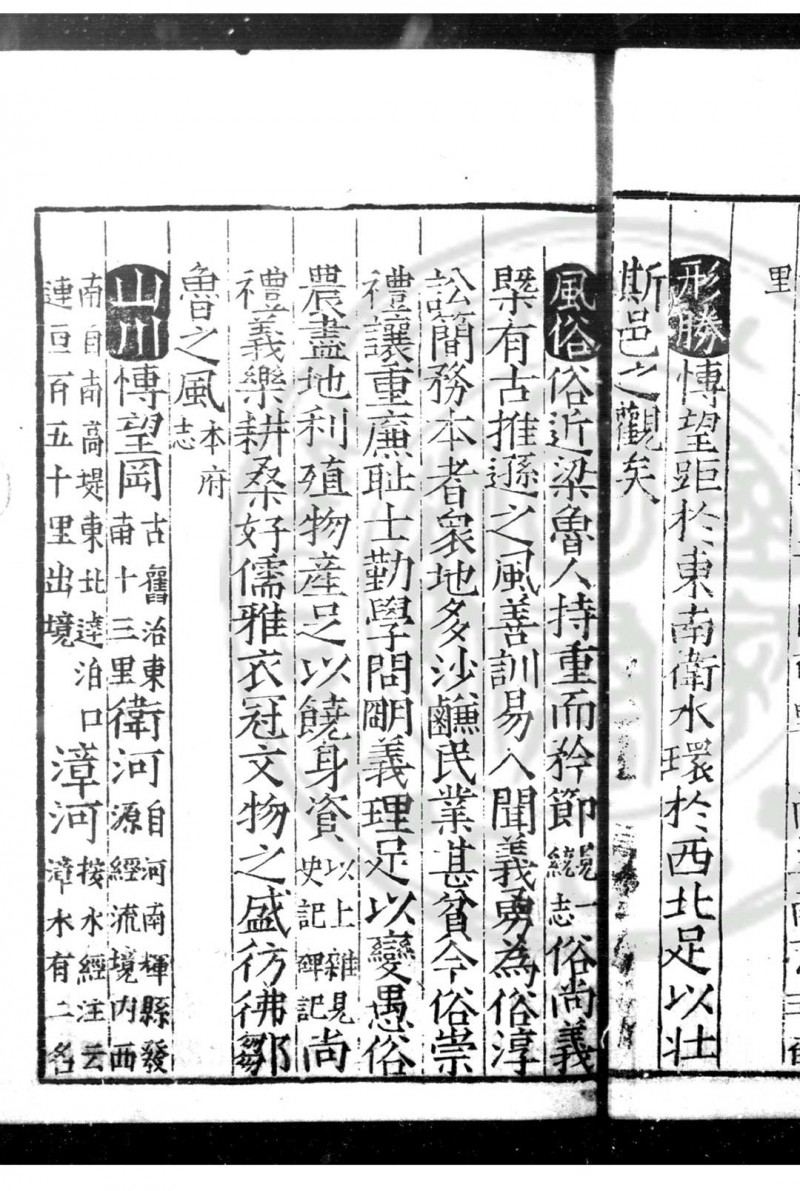 里
形勝 博望距於東南衛水環於西北足以壯
斯邑之觀矣
風俗 俗近梁魯人持重而矜節見一統志俗尚義
槩有古推遜之風善訓易入聞義勇為俗淳
訟簡務本者衆地多沙鹻民業甚貧今俗崇
禮讓重廉恥士勤學問明義理足以變愚俗
農盡地利殖物產足以饒身資以上雜見史記碑記尚
禮義樂耕桑好儒雅衣冠文物之盛彷彿鄒
魯之風本府志
山川 博望岡古舊治東南十三里衛河自河南輝縣發源經流境内西
南自南高堤東北達泊口連亘百五十里出境漳河按水經注云漳水有二名